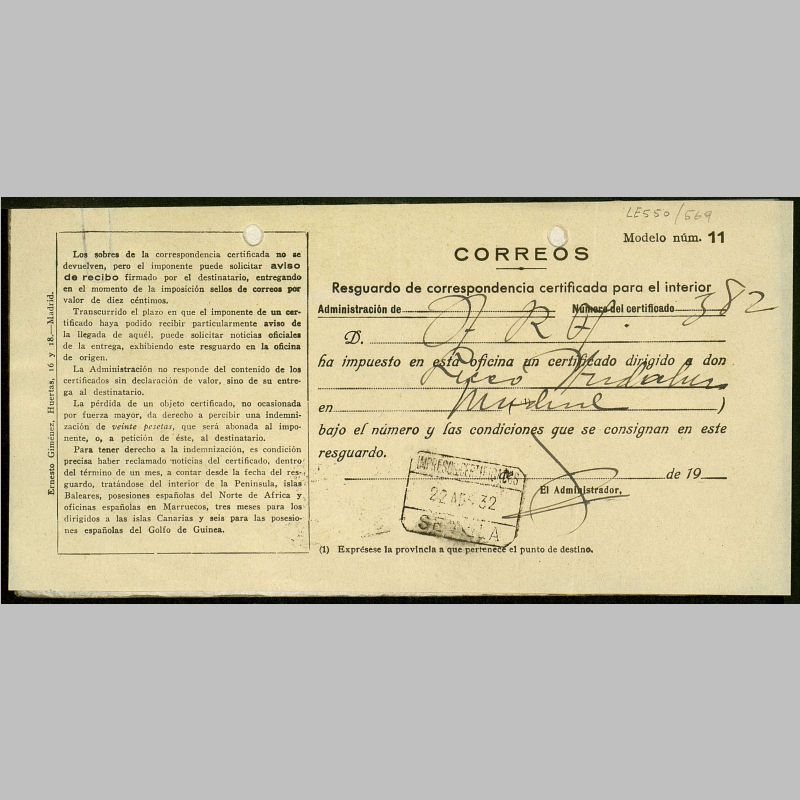 LE550/569
Modelo núm. 11
CORREOS
Resguardo de correspondencia certificada para el interior
Administración de Número del certificado 382
D. J R F.
ha impuesto en esta oficina un certificado dirigido a don
en )
bajo el número y las condiciones que se consignan en este
resguardo.
de 19
El Administrador,
22 32
(1) Exprésese la provincia a que pertenece el punto de destino.
Los sobres de la correspondencia certificada no se
devuelven, pero el imponente puede solicitar aviso
de recibo firmado por el destinatario, entregando
en el momento de la imposición sellos de correos por
valor de diez céntimos.
Transcurrido el plazo en que el imponente de un cer-
tificado haya podido recibir particularmente aviso de
la llegada de aquél, puede solicitar noticias oficiales
de la entrega, exhibiendo este resguardo en la oficina
de origen.
La Administración no responde del contenido de los
certificados sin declaración de valor, sino de su entre-
ga al destinatario.
La pérdida de un objeto certificado, no ocasionada
por fuerza mayor, da derecho a percibir una indemni-
zación de veinte pesetas, que será abonada al impo-
nente, o, a petición de éste, al destinatario.
Para tener derecho a la indemnización, es condición
precisa haber reclamado noticias del certificado, dentro
del término de un mes, a contar desde la fecha del res-
guardo, tratándose del interior de la Península, islas
Baleares, posesiones españolas del Norte de Africa y
oficinas españolas en Marruecos, tres meses para los
dirigidos a las islas Canarias y seis para las posesio-
nes españolas del Golfo de Guinea.
Ernesto Giménez, Huertas, 16 y 18.—Madrid.